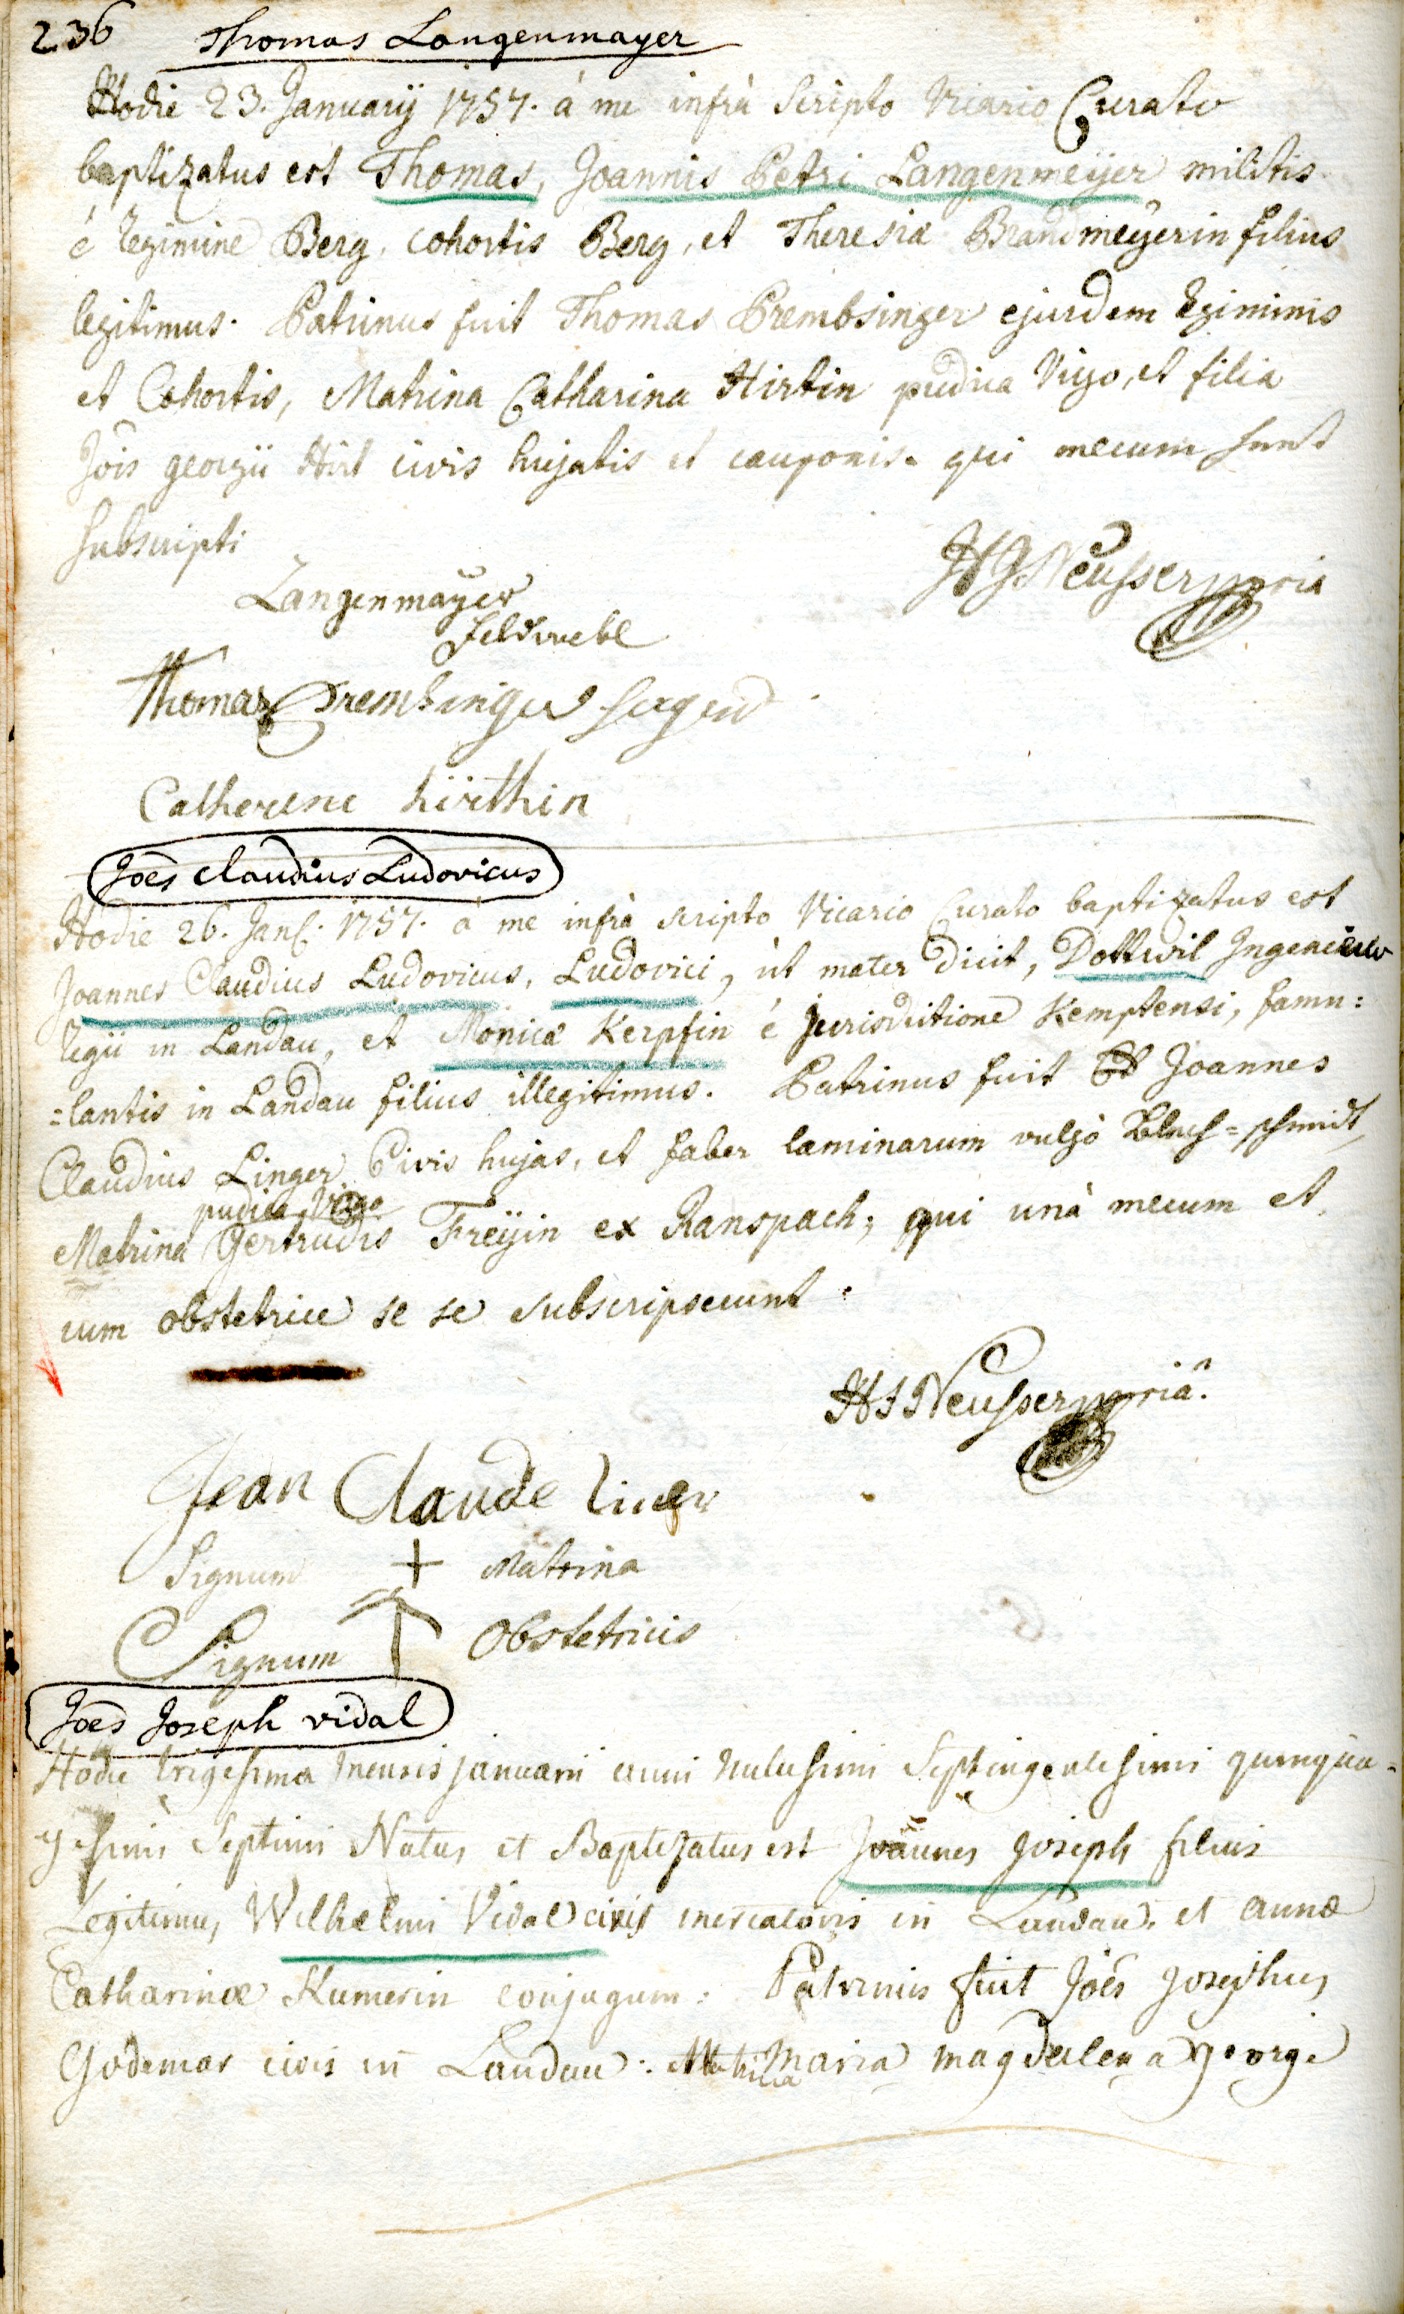 236 Thomas Langenmayer
Hodie 23. Januarij 1757. à me infrà scripto Vicario Curato
baptizatus est Thomas, Joannis Petri Langenmeÿer militis
é regimine Berg, cohortis Berg, et Theresiæ Brandmeÿerin filius
legitimus. Patrinus fuit Thomas Prembsinger ejusdem regiminis
et Cohortis, Matrina Catharina Hirtin pudica Virgo, et filia
Jôis georgii Hirt civis hujatis et cauponis. qui mecum sunt
subscripti
HJ Neusser mpria
Langenmaÿer
feldwebl
Thomas Prembsinger
Catherene hïrthin
Joes Claudius Ludovicus
Hodie 26. Jan. 1757. a me infrà scripto Vicario Curato baptizatus est
Joannes Claudius Ludovicus, Ludovici, ùt mater dicit, Dottwil
regii in Landau, et Monicæ Kerpfin é jurisdictione Kemptensi, famu:
=lantis in Landau filius illegitimus. Patrinus fuit Joannes
Claudius Linger Civis hujas, et faber laminarum vulgò blech=schmidt,
pudica Virgo
Matrina Gertrudis Freÿin ex Ranspach; qui unà mecum et
cum obstetrice se se subscripserunt.
HJ Neusser mpriâ.
Jean Claude
Signum + Matrina
Signum Obstetricis
Joês Joseph vidal
Hodie trigesima mensis januarii anni millesimi Septingentesimi quinqua-
gesimi Septimi Natus et Baptizatus est Joannes Joseph filius
Legitimus Wilhelmi Vidal civis mercatoris in Landau, et annæ
Catharinæ Kumerin conjugum: Patrinus fuit Jôês Josephus
Godemar civis in Landau: Matrina Maria magdalena george